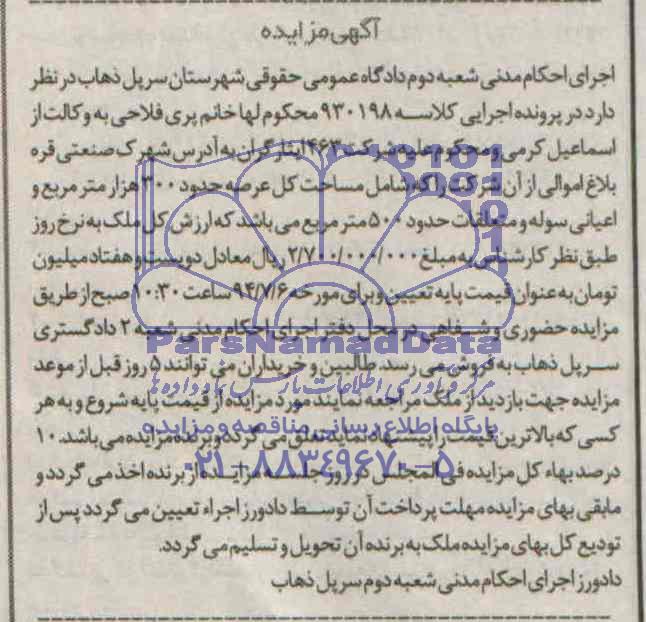 آگهی مزایده
اجرای احکام مدنی شعبه دوم دادگاه عمومی حقوقی شهرستان سرپل ذهاب در نظر
دارد در پرونده اجرایی کلاسه ۹۳۰۱۹۸ محکوم لها خانم پری فلاحی به وکالت از
اسماعیل کرمی و محکوم علیه شرکت ۴۶۳ ایثارگران به آدرس شهرک صنعتی قره
بلاغ اموالی از آن شرکت را که شامل مساحت کل عرصه حدود ۳۰۰ هزار متر مربع و
اعیانی سوله و متعلقات حدود ۵۰۰ متر مربع می باشد که ارزش کل ملک به نرخ روز
طبق نظر کارشناس به مبلغ ۲/۷۰۰/۰۰۰/۰۰۰ ریال معادل دویست و هفتاد میلیون
تومان به عنوان قیمت پایه تعیین و برای مورخه ۹۴/۷/۶ ساعت ۱۰:۳۰ صبح از طریق
مزایده حضوری و شفاهی در محل دفتر اجرای احکام مدنی شعبه ۲ دادگستری
سرپل ذهاب به فروش می رسد. طالبین و خریداران می توانند ۵ روز قبل از موعد
مزایده جهت بازدید از ملک مراجعه نمایند مورد مزایده از قیمت پایه شروع و به هر
کسی که بالاترین قیمت را پیشنهاد نماید تعلق می گردد و برنده مزایده می باشد. ۱۰
درصد بهاء کل مزایده فی المجلس در روز جلسه مزایده از برنده اخذ می گردد و
مابقی بهای مزایده مهلت پرداخت آن توسط دادورز اجراء تعیین می گردد پس از
تودیع کل بهای مزایده ملک به برنده آن تحویل و تسلیم می گردد.
دادورز اجرای احکام مدنی شعبه دوم سرپل ذهاب
ParsNamadData
مرکز فرآوری اطلاعات پارس نماد داده ها
پایگاه اطلاع رسانی مناقصه و مزایده
۰۲۱-۸۸۳۴۹۶۷۰-۵